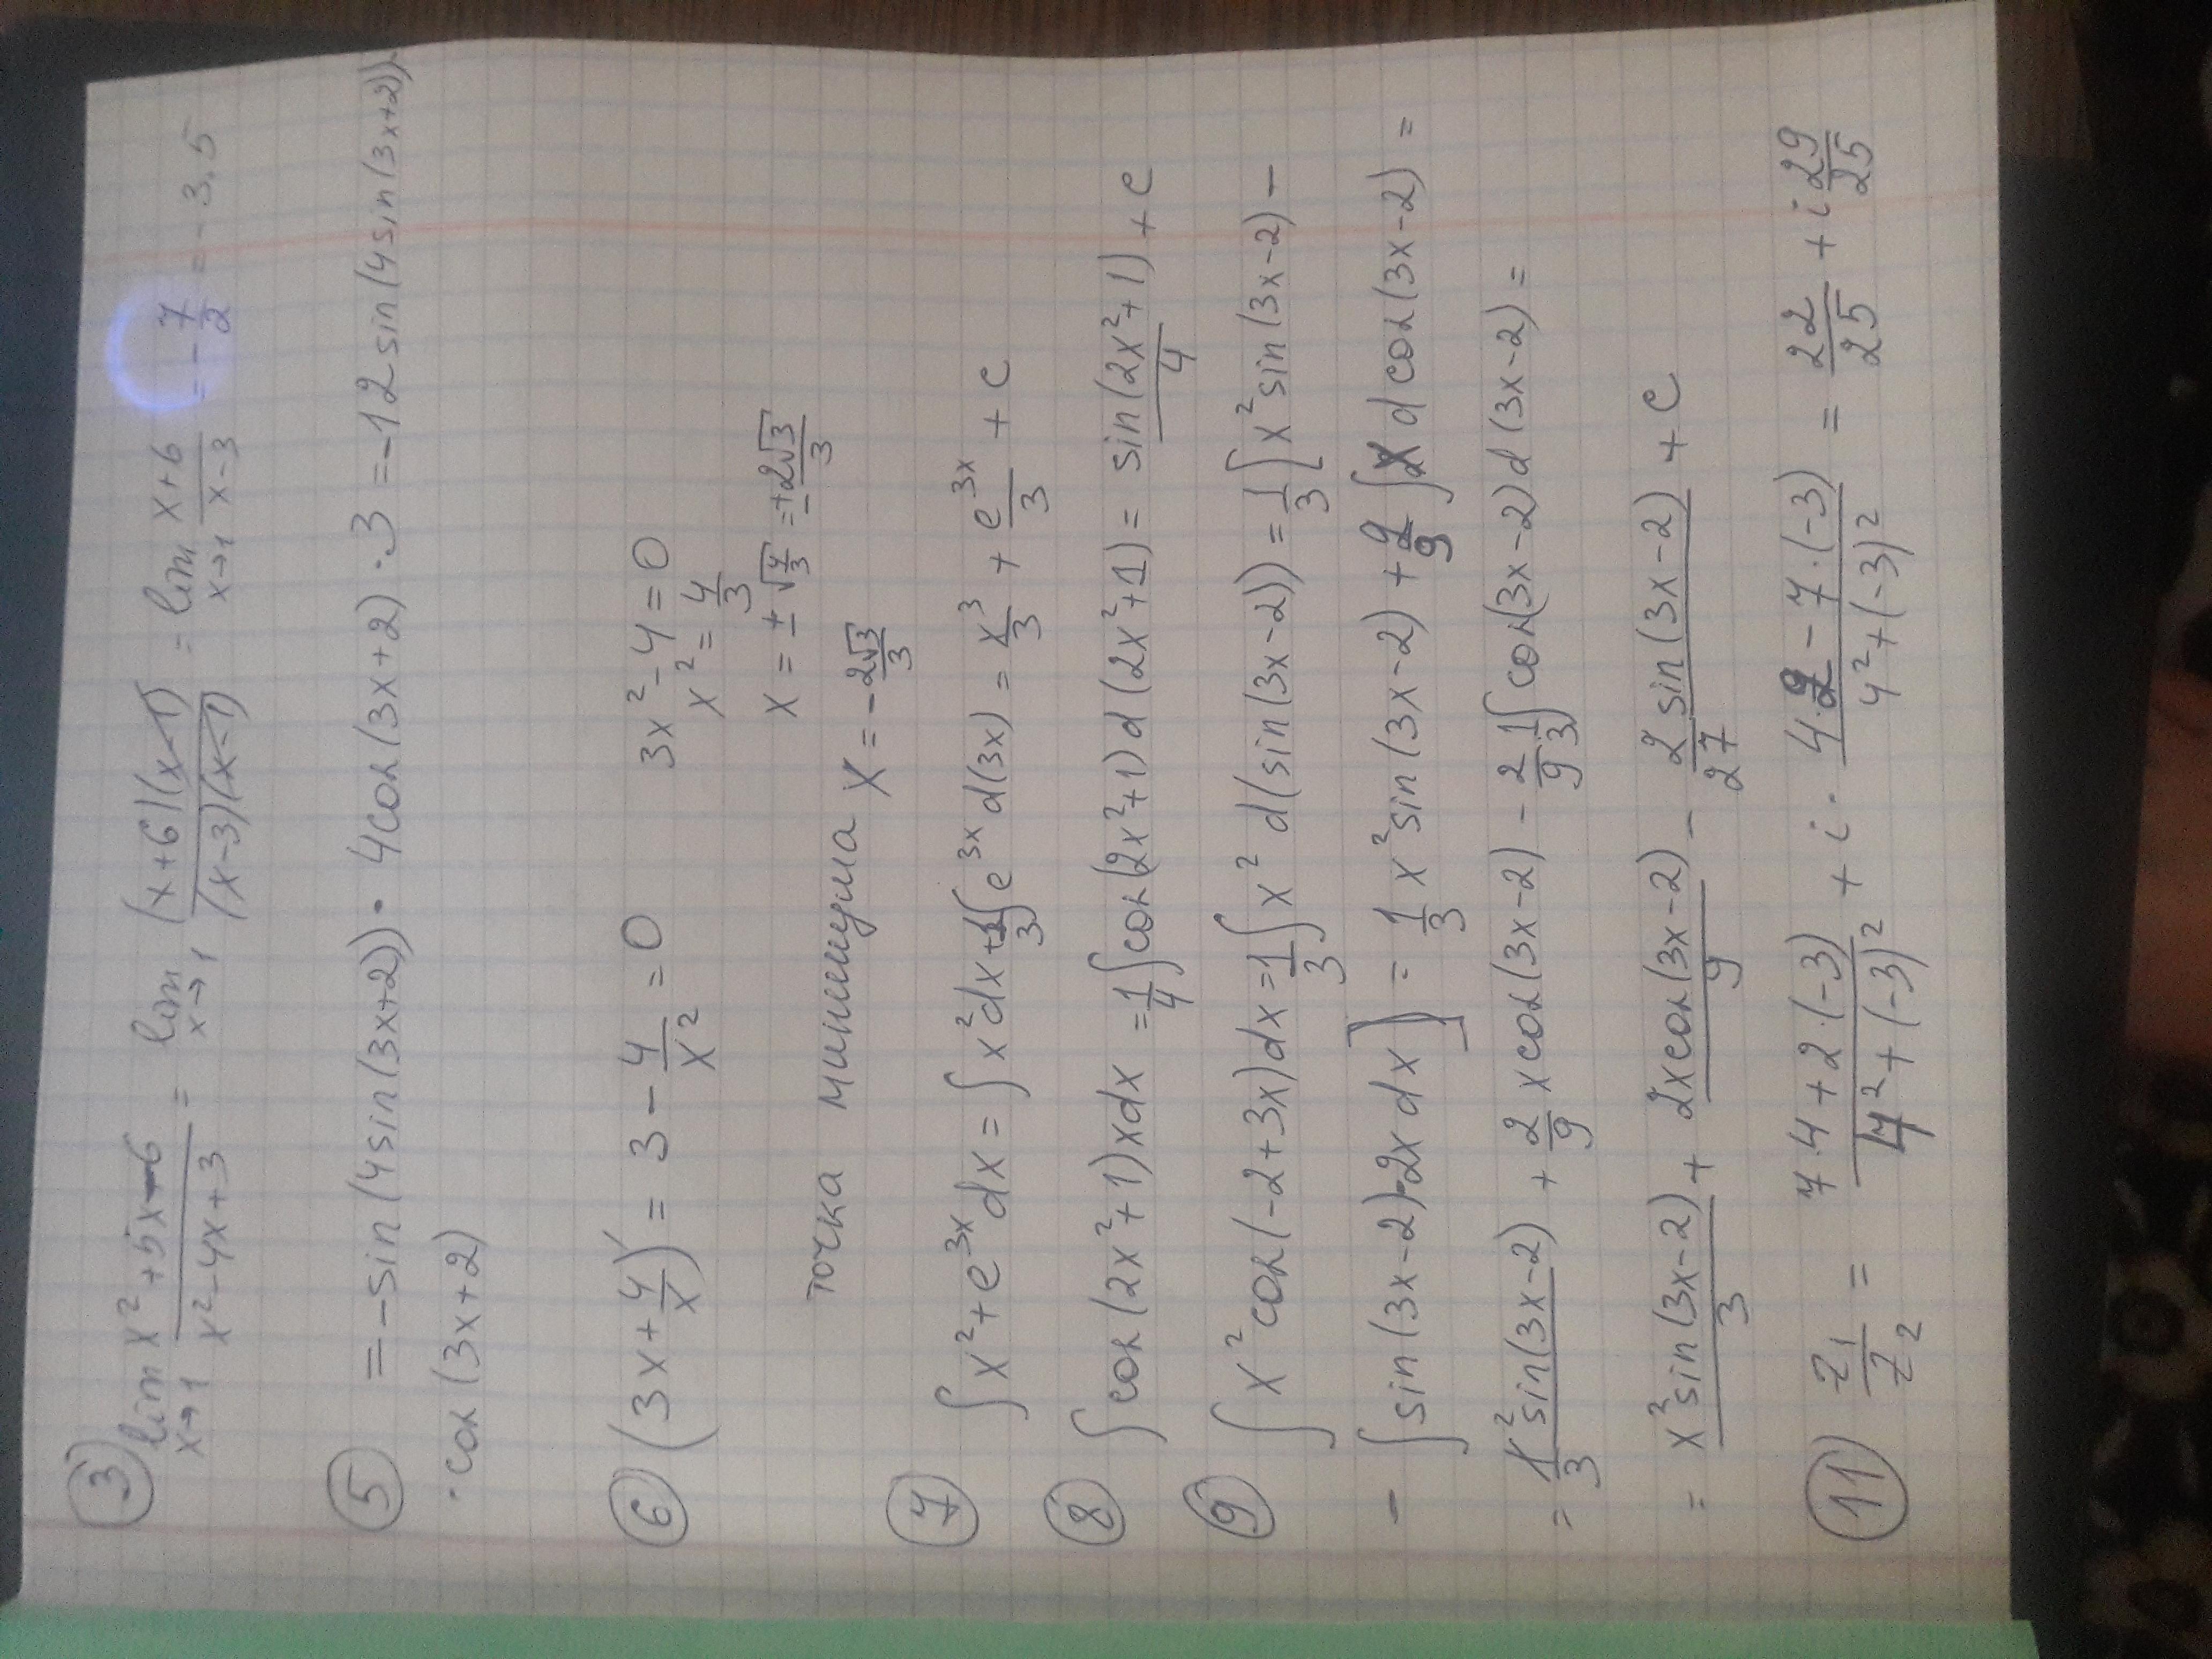 3) lim x→1 (x²+5x-6)/(x²-4x+3) = lim x→1 (x+6)(x-1)/(x-3)(x-1) = lim x→1 (x+6)/(x-3) = -7/2 = -3.5
5) = -sin(4sin(3x+2))·4cos(3x+2)·3 = -12sin(4sin(3x+2))·
·cos(3x+2)
6) (3x+4/x)' = 3 - 4/x² = 0 3x²-4=0
x² = 4/3
x = ±√4/3 = ±2√3/3
точка минимума x = -2√3/3
7) ∫x²+e^3x dx = ∫x²dx+1/3∫e^3x d(3x) = x³/3 + e^3x/3 + c
8) ∫cos(2x²+1)xdx = 1/4∫cos(2x²+1)d(2x²+1) = sin(2x²+1)/4 + c
9) ∫x²cos(-2+3x)dx = 1/3∫x² d(sin(3x-2)) = 1/3[x²sin(3x-2) -
- ∫sin(3x-2)·2x dx] = 1/3 x²sin(3x-2) + 2/9 ∫x d cos(3x-2) =
= x²sin(3x-2)/3 + 2/9 xcos(3x-2) - 2/9 1/3∫cos(3x-2)d(3x-2) =
= x²sin(3x-2)/3 + 2xcos(3x-2)/9 - 2/27 sin(3x-2) + c
11) z₁/z₂ = (7·4+2·(-3))/(4²+(-3)²) + i·(4·2-7·(-3))/(4²+(-3)²) = 22/25 + i 29/25